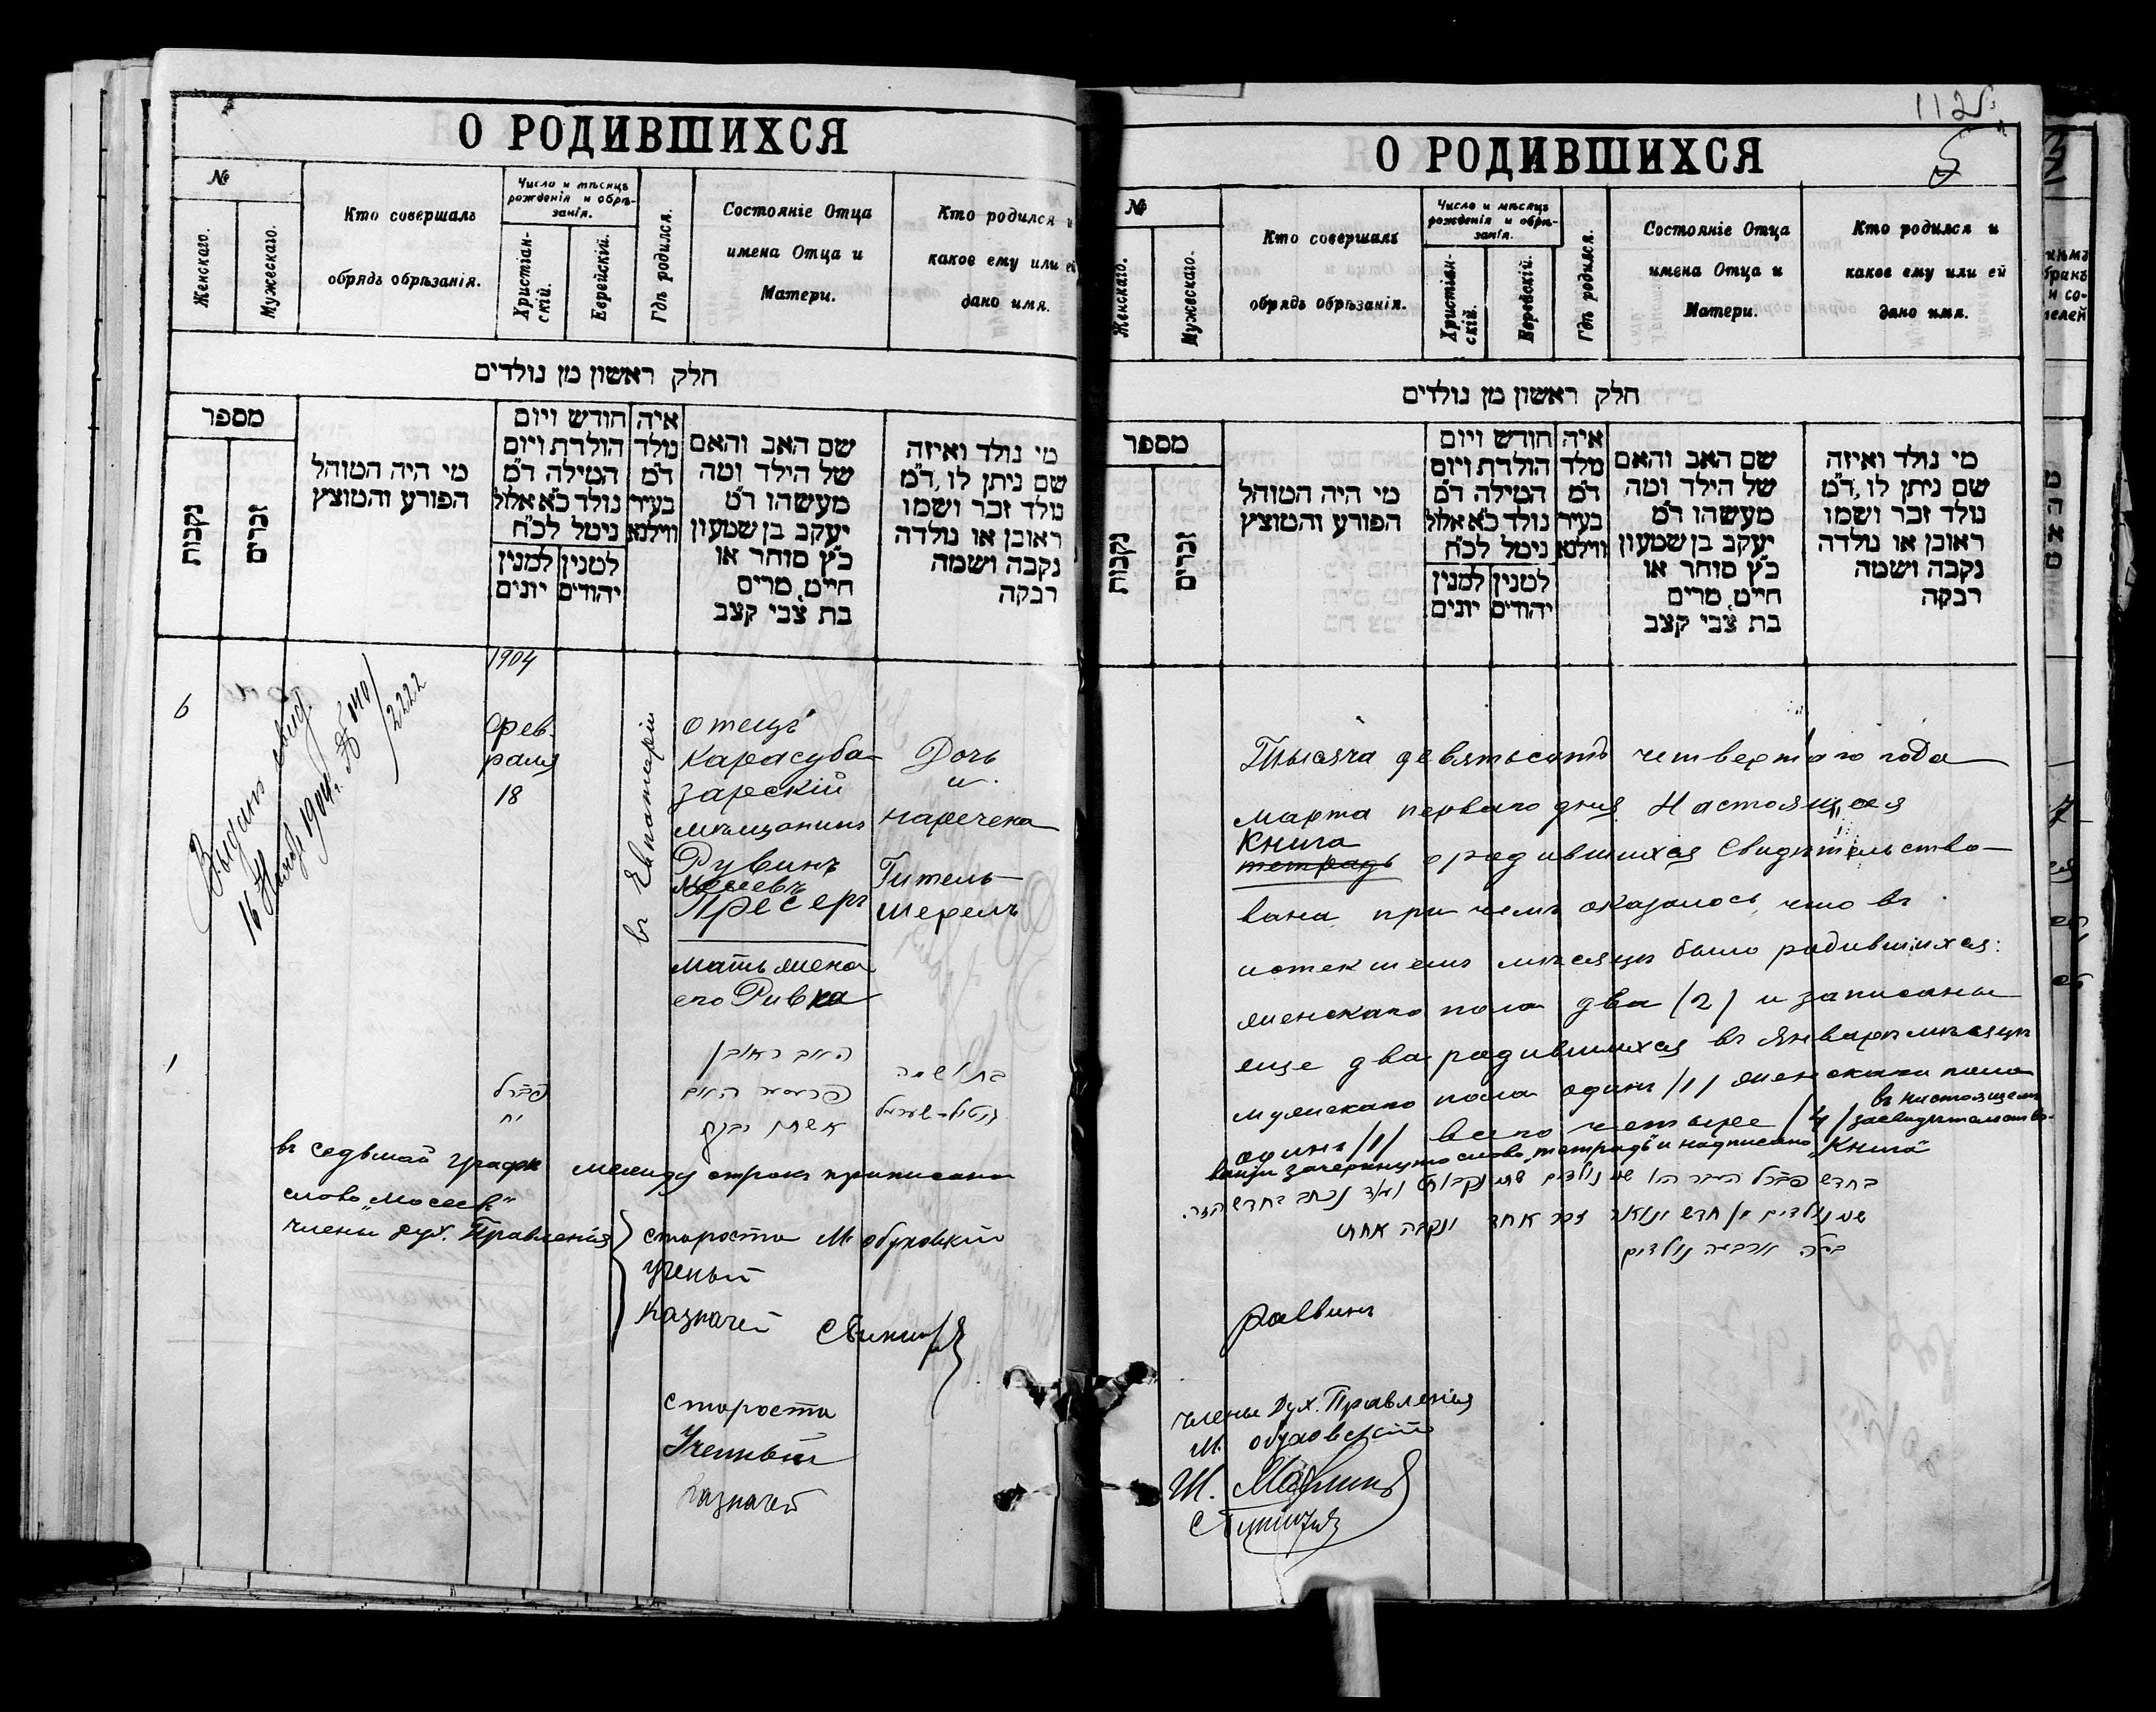 О РОДИВШИХСЯ
№
Женскаго.
Мужескаго.
Кто совершалъ
обрядъ обрѣзанія.
Число и мѣсяцъ
рожденія и обрѣ-
занія.
Христіан-
скій.
Еврейскій.
Гдѣ родился.
Состояніе Отца
имена Отца и
Матери.
Кто родился и
какое ему или ей
дано имя.
חלק ראשון מן נולדים
מספר
נקבות
זכרים
מי היה המוהל
הפורע והמוצץ
חודש ויום
הולדת ויום
המילה ד״מ
נולד כ״א אלול
נימל לכ״ח
למנין
יהודים
למנין
יונים
איה
נולד
ד״מ
בעיר
ווילנא
שם האב והאם
של הילד ומה
מעשהו ד״מ
יעקב בן שמעון
כ״ץ סוחר או
חייט, מרים
בת צבי קצב
מי נולד ואיזה
שם ניתן לו, ד״מ
נולד זכר ושמו
ראובן או נולדה
נקבה ושמה
רבקה
6
Выданъ свид.
1904
Фев-
раля
18
въ Евпаторіи
отецъ
Карасуба-
зарскій
мѣщанинъ
Рувинъ
Мосеевъ
Пресеръ
мать жена
его Ривка
Дочь
и
наречена
Гитель-
Шерель
1
פברל
יח
האב ראובן
פרעסער האם
אשתו רבקה
בת ושמה
גיטיל-שעריל
въ седьмой графѣ между строкъ приписано
слово „Мосеевъ“
члены Дух. Правленія
староста М Обуховскій
ученый
Казначей
староста
Ученый
Казначей
О РОДИВШИХСЯ
112
5
№
Женскаго.
Мужескаго.
Кто совершалъ
обрядъ обрѣзанія.
Число и мѣсяцъ
рожденія и обрѣ-
занія.
Христіан-
скій.
Еврейскій.
Гдѣ родился.
Состояніе Отца
имена Отца и
Матери.
Кто родился и
какое ему или ей
дано имя.
חלק ראשון מן נולדים
מספר
נקבות
זכרים
מי היה המוהל
הפורע והמוצץ
חודש ויום
הולדת ויום
המילה ד״מ
נולד כ״א אלול
נימל לכ״ח
למנין
יהודים
למנין
יונים
איה
נולד
ד״מ
בעיר
ווילנא
שם האב והאם
של הילד ומה
מעשהו ד״מ
יעקב בן שמעון
כ״ץ סוחר או
חייט, מרים
בת צבי קצב
מי נולד ואיזה
שם ניתן לו, ד״מ
נולד זכר ושמו
ראובן או נולדה
נקבה ושמה
רבקה
Тысяча девятьсотъ четвертаго года
марта перваго дня Настоящая
Книга
тетрадь о родившихся Свидѣтельство-
вана при чемъ оказалось, что въ
истекшемъ мѣсяцѣ было родившихся:
женскаго пола два /2/ и записаны
еще два родившихся въ Январѣ мѣсяцѣ
мужскаго пола одинъ /1/ женскаго пола
одинъ /1/ всего четыре /4/ въ настоящемъ
засвидѣтельство-
ваніи зачеркнуто слово „тетрадь“ и надписано „Книга“
Раввинъ
члены Дух. Правленія
М. Обуховскій